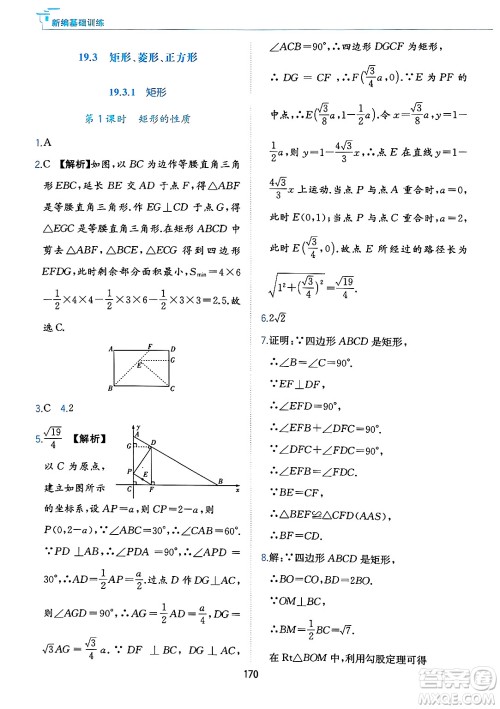 新编基础训练
19.3 矩形、菱形、正方形
19.3.1 矩形
第1课时 矩形的性质
1.A
2.C 【解析】如图,以BC为边作等腰直角三角
形EBC,延长BE交AD于点F,得△ABF
是等腰直角三角形,作EG⊥CD于点G,得
△EGC是等腰直角三角形,在矩形ABCD中
剪去△ABF、△BCE、△ECG得到四边形
EFDG,此时剩余部分面积最小,Smin=4×6
-1/2×4×4-1/2×3×6-1/2×3×3=2.5.故
选C.
A F D
E G
B C
3.C 4.2
5.√19/4 【解析】
以C为原点,
建立如图所示
的坐标系,设AP=a,则PC=2-a,所以
P(0,2-a),∵∠ABC=30°,∴∠BAC=60°.
∵PD⊥AB,∴∠PDA=90°,∴∠APD=
30°,∴AD=1/2AP=1/2a.过点D作DG⊥AC,
∴∠AGD=90°,∴AG=1/2AD=a/4,DG=
√3AG=√3/4a.∵DF⊥BC,∴∠DFC=
y
A
G D
P E
C F B x
∠ACB=90°,∴四边形DGCF为矩形,
∴DG=CF=√3/4a.∵点E为PF的
中点,∴点E(√3/8a,1-a/2).令x=√3/8a,y=1-
1/2a,∴y=-4√3/3x+1,∴点E在直线y=-
4√3/3x+1上运动.当点P与点A重合时,a=0,此
时E(0,1);当点P与点C重合时,a=2,此
时点E(√3/4,0),因此点E所经过的路径长为
√(1²+(√3/4)²)=√19/4.
6.2√2
7.证明:∵四边形ABCD是矩形,
∴∠B=∠C=90°.
∵EF⊥DF,
∴∠EFD=90°,
∴∠EFB+∠DFC=90°.
∵∠EFB+∠BEF=90°,
∴∠DFC=∠BEF.
∵BE=CF,
∴△BEF≌△CFD(AAS),
∴BF=CD.
8.解:∵四边形ABCD是矩形,
∴BO=CO,∠BCD=90°.
∵OM⊥BC,
∴BM=1/2BC=7.
在Rt△BOM中,利用勾股定理可得
170